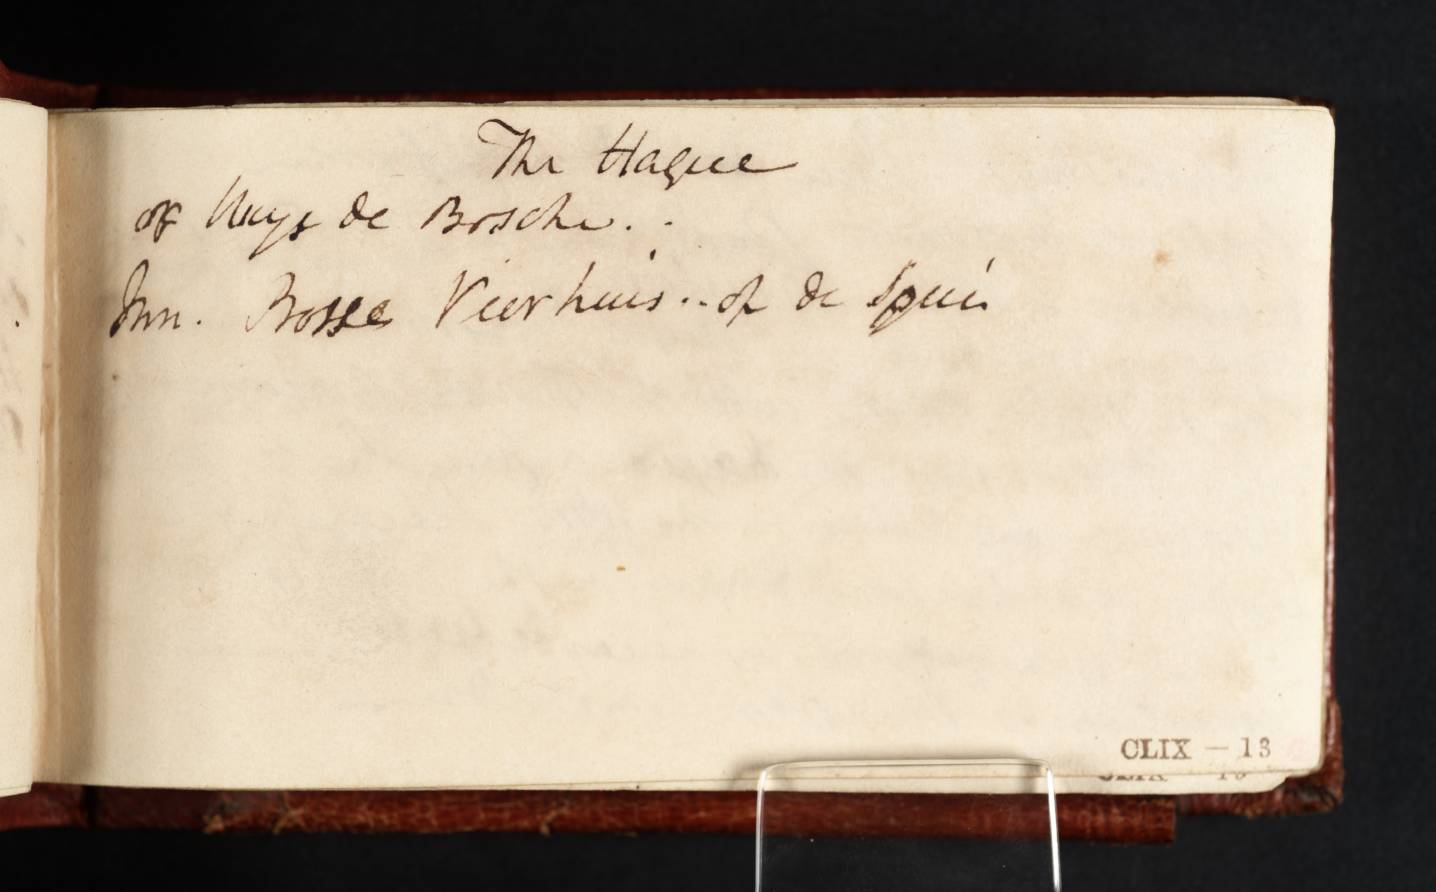 The Hague
of Huys de Bosche..
Inn. Bosses Vierhuis.. op de Spui
CLIX — 13 a
CLIX